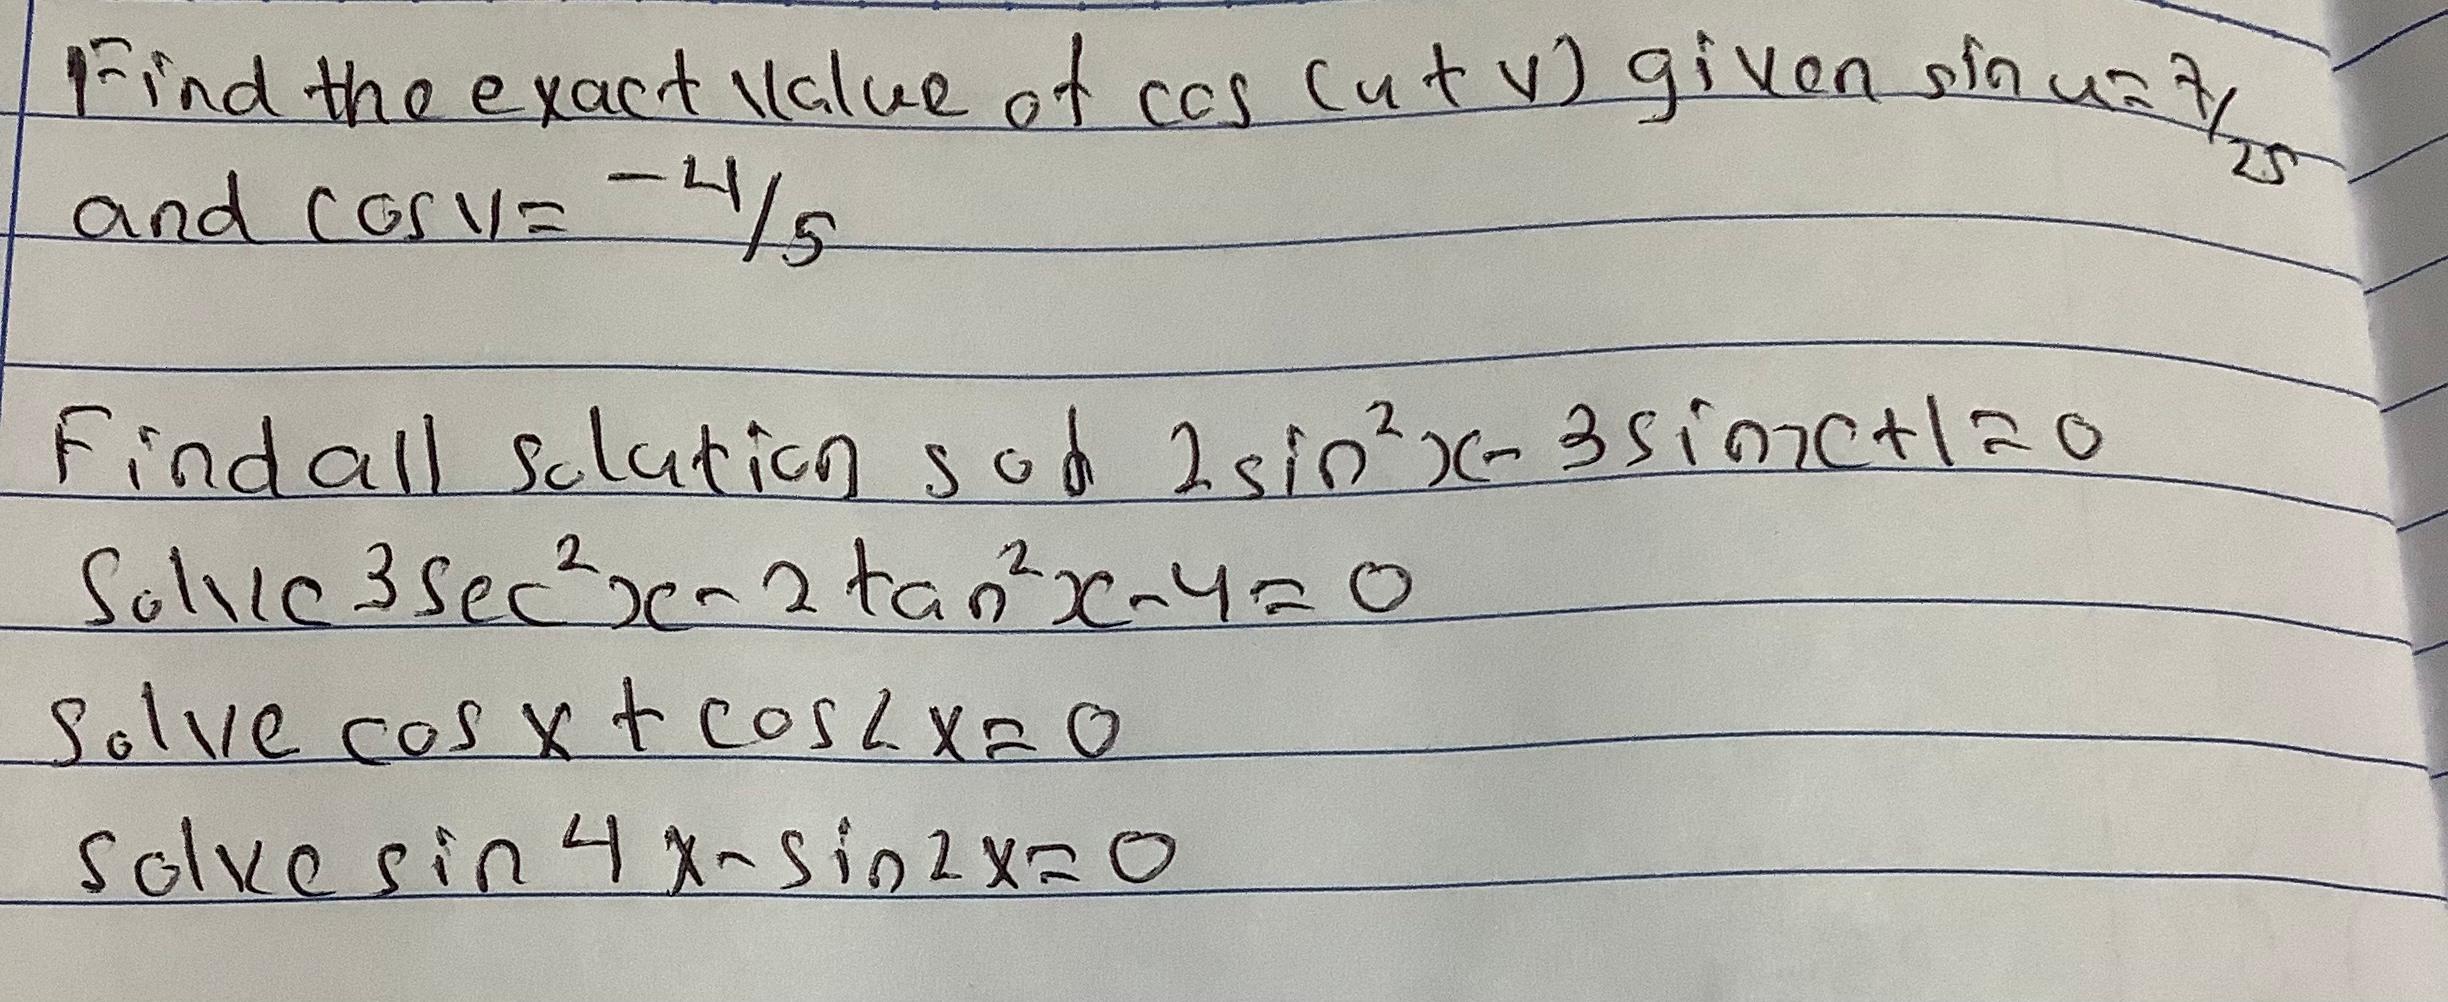 Find the exact value of cos (u + v) given sin u = 7/25
and cos v = -4/5
Find all solutions of 2 sin²x - 3 sin x + 1 = 0
Solve 3 sec²x - 2 tan²x - 4 = 0
Solve cos x + cos 2x = 0
Solve sin 4x - sin 2x = 0